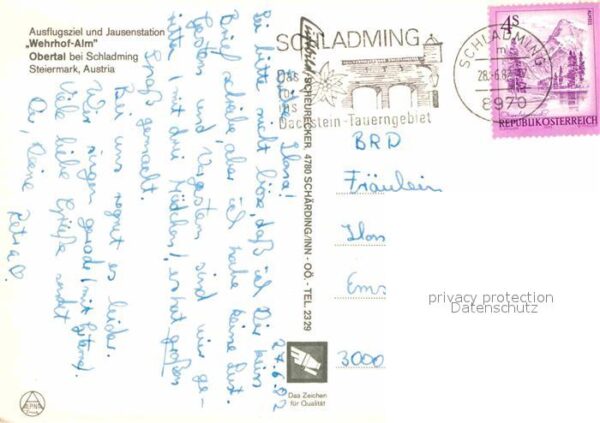 Ausflugsziel und Jausenstation
„Wehrhof-Alm"
Obertal bei Schladming
Steiermark, Austria
27.6.82
Liebe Ilona!
Sei bitte nicht böse, daß ich Dir kein
Brief schreibe, aber ich habe keine Lust.
Gestern und Vorgestern sind wir ge-
ritten (mit drei Mädchen), es hat großen
Spaß gemacht.
Bei uns regnet es leider.
Wir singen gerade (mit Gitarre).
Viele liebe Grüße sendet
Dir, Deine Petra
Luftbild SCHEURECKER, 4780 SCHÄRDING/INN - OÖ. - TEL. 2329
Das Zeichen
für Qualität
SCHLADMING
DAS
TOR
INS
Dachstein-Tauerngebiet
SCHLADMING
m
28.-6.82
8970
4S
REPUBLIK ÖSTERREICH
BRD
Fräulein
Ilon
Ems
3000
privacy protection
Datenschutz